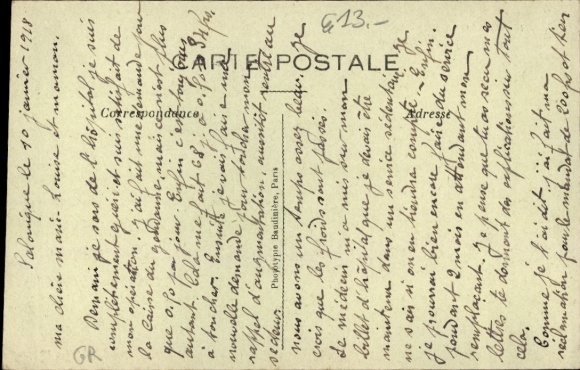 €13.-
CARTE POSTALE
Correspondance
Adresse
Phototypie Baudinière, Paris
GR
Salonique le 10 janvier 1918
ma chère marie-Louise et maman.
Demain je sors de l'hôpital, je suis
complètement guéri et suis satisfait de
mon opération. j'ai fait une demande sur
la caisse du gendarme, mais ce n'est plus
que 0,50 par jour. Enfin c'est toujours
autant. Cela me fait 68 j à 0,50 = 34 frs
à toucher. Ensuite je vais faire une
nouvelle demande pour toucher mon
rappel d'augmentation, aussitôt rendu au
secteur.
nous avons un temps assez beau. je
crois que les froids sont passés.
Le médecin m'a mis sur mon
billet d'hôpital que je devais être
maintenu dans un service sédentaire. je
ne sais si on en tiendra compte. Enfin.
je pourrai bien encore faire du service
pendant 2 mois en attendant mon
remplaçant. je pense que tu as reçu mes
lettres te donnant des explications sur tout
cela.
Comme je t'ai dit j'ai fait ma
réclamation pour le mandat de 200 frs et bien